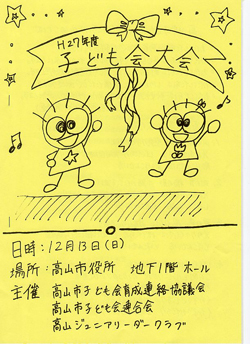 H27年度
子ども会大会
日時:12月13日(日)
場所:高山市役所 地下1階 ホール
主催 高山市子ども会育成連絡協議会
高山市子ども会連合会
高山ジュニアリーダークラブ